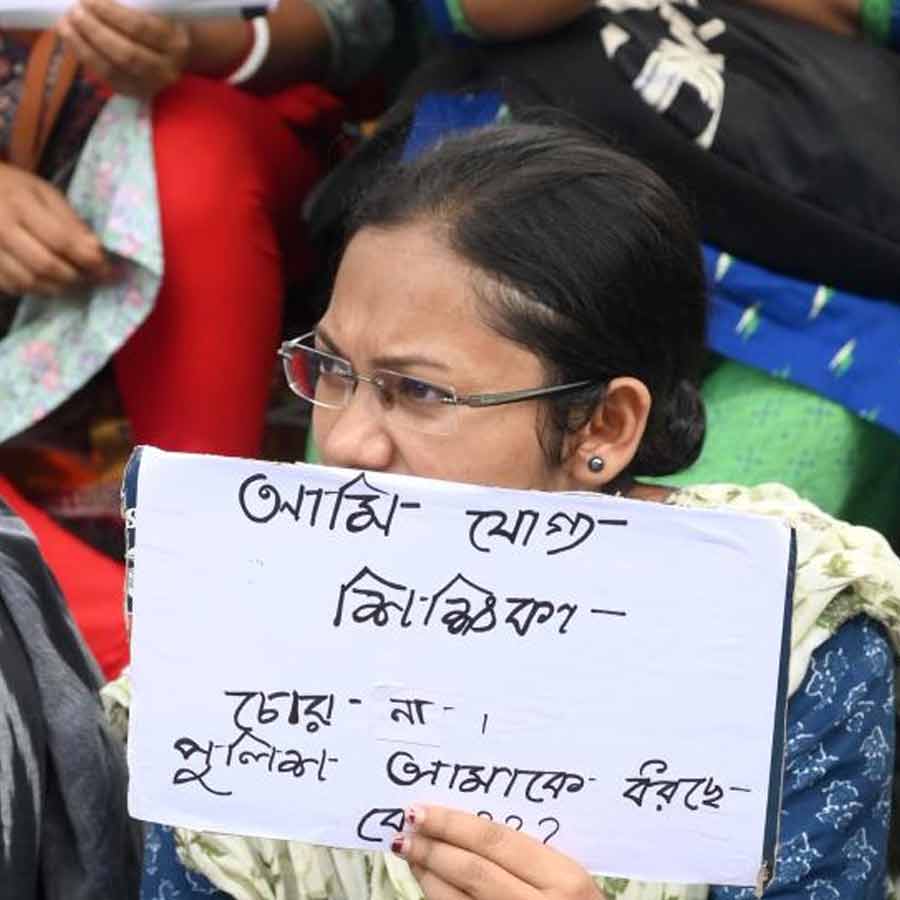 আমি যোগ্য
শিক্ষিকা
চোর না।
পুলিশ আমাকে ধরছে
???